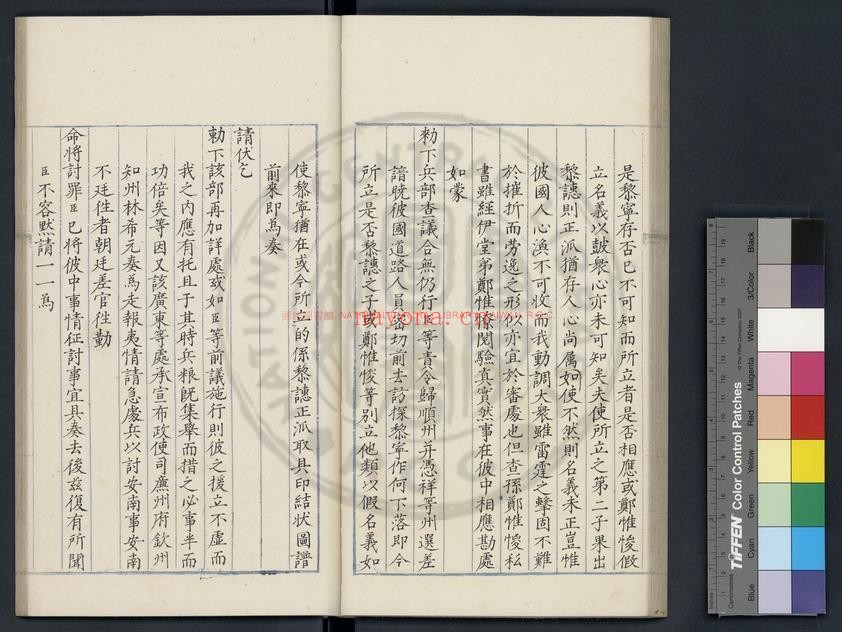 是黎寧存否已不可知而所立者是否相應或鄭惟憿假
立名義以鼓衆心亦未可知矣夫使所立之第二子果出
黎譓則正派猶存人心尚属如使不然則名義未正豈惟
彼國人心渙不可收而我動調大衆雖雷霆之擊固不難
於摧折而勞逸之形似亦宜於審處也但查一孫鄭惟憿私
書雖經伊堂弟鄭惟僚閱驗真實然事在彼中相應勘處
如蒙
勑下兵部查議合無仍行臣等責令歸順州并憑祥等州選差
諳曉彼國道路人員密切前去訪探黎寧作何下落即今
所立是否黎譓之子或鄭惟憿等别立他類以假名義如
使黎寧猶在或今所立的係黎譓正派取具印結狀圖譜
前來即為奏
請伏乞
勑下該部再加詳處或如臣等前議施行則彼之援立不虛而
我之内應有托且于其時兵粮既集舉而措之必事半而
功倍矣等因又該廣東等處承宣布政使司廉州府欽州
知州林希元奏為走報夷情請急處兵以討安南事安南
不廷徃者朝廷差官徃勘
命將討罪臣已將彼中事情征討事宜具奏去後兹復有所聞
臣不容默請一一為
國家圖書館, NATIONAL CENTRAL LIBRARY, TAIWAN, R.O.C.
nayona.cn
TIFFEN Color Control Patches
© The Tiffen Company, 2007
Centimetres
Inches
Blue
Cyan
Green
Yellow
Red
Magenta
White
3/Color
Black